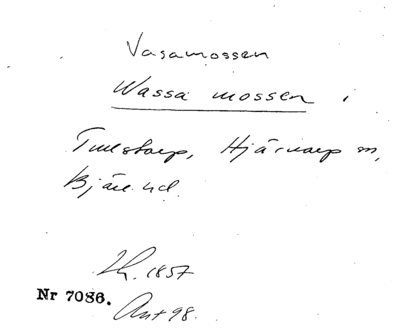 Vasamossen
Wassa mossen i
Tullstorp, Hjärnarp sn,
Bjäre hd.
Lk. 1857
Nr 7086.
Ant 98.